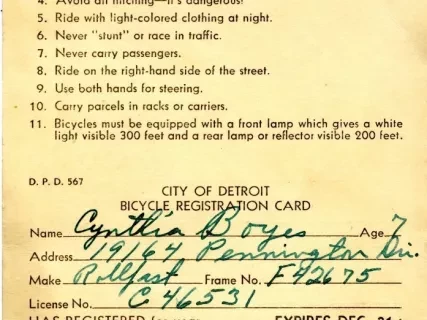 4. Avoid all hitching—it's dangerous!
5. Ride with light-colored clothing at night.
6. Never "stunt" or race in traffic.
7. Never carry passengers.
8. Ride on the right-hand side of the street.
9. Use both hands for steering.
10. Carry parcels in racks or carriers.
11. Bicycles must be equipped with a front lamp which gives a white
light visible 300 feet and a rear lamp or reflector visible 200 feet.
D. P. D. 567
CITY OF DETROIT
BICYCLE REGISTRATION CARD
Name Cynthia Boyes Age 7
Address 19164 Pennington Dr.
Make Rollfast Frame No. F42675
License No. C 46531
HAS REGISTERED EXPIRES DEC. 31